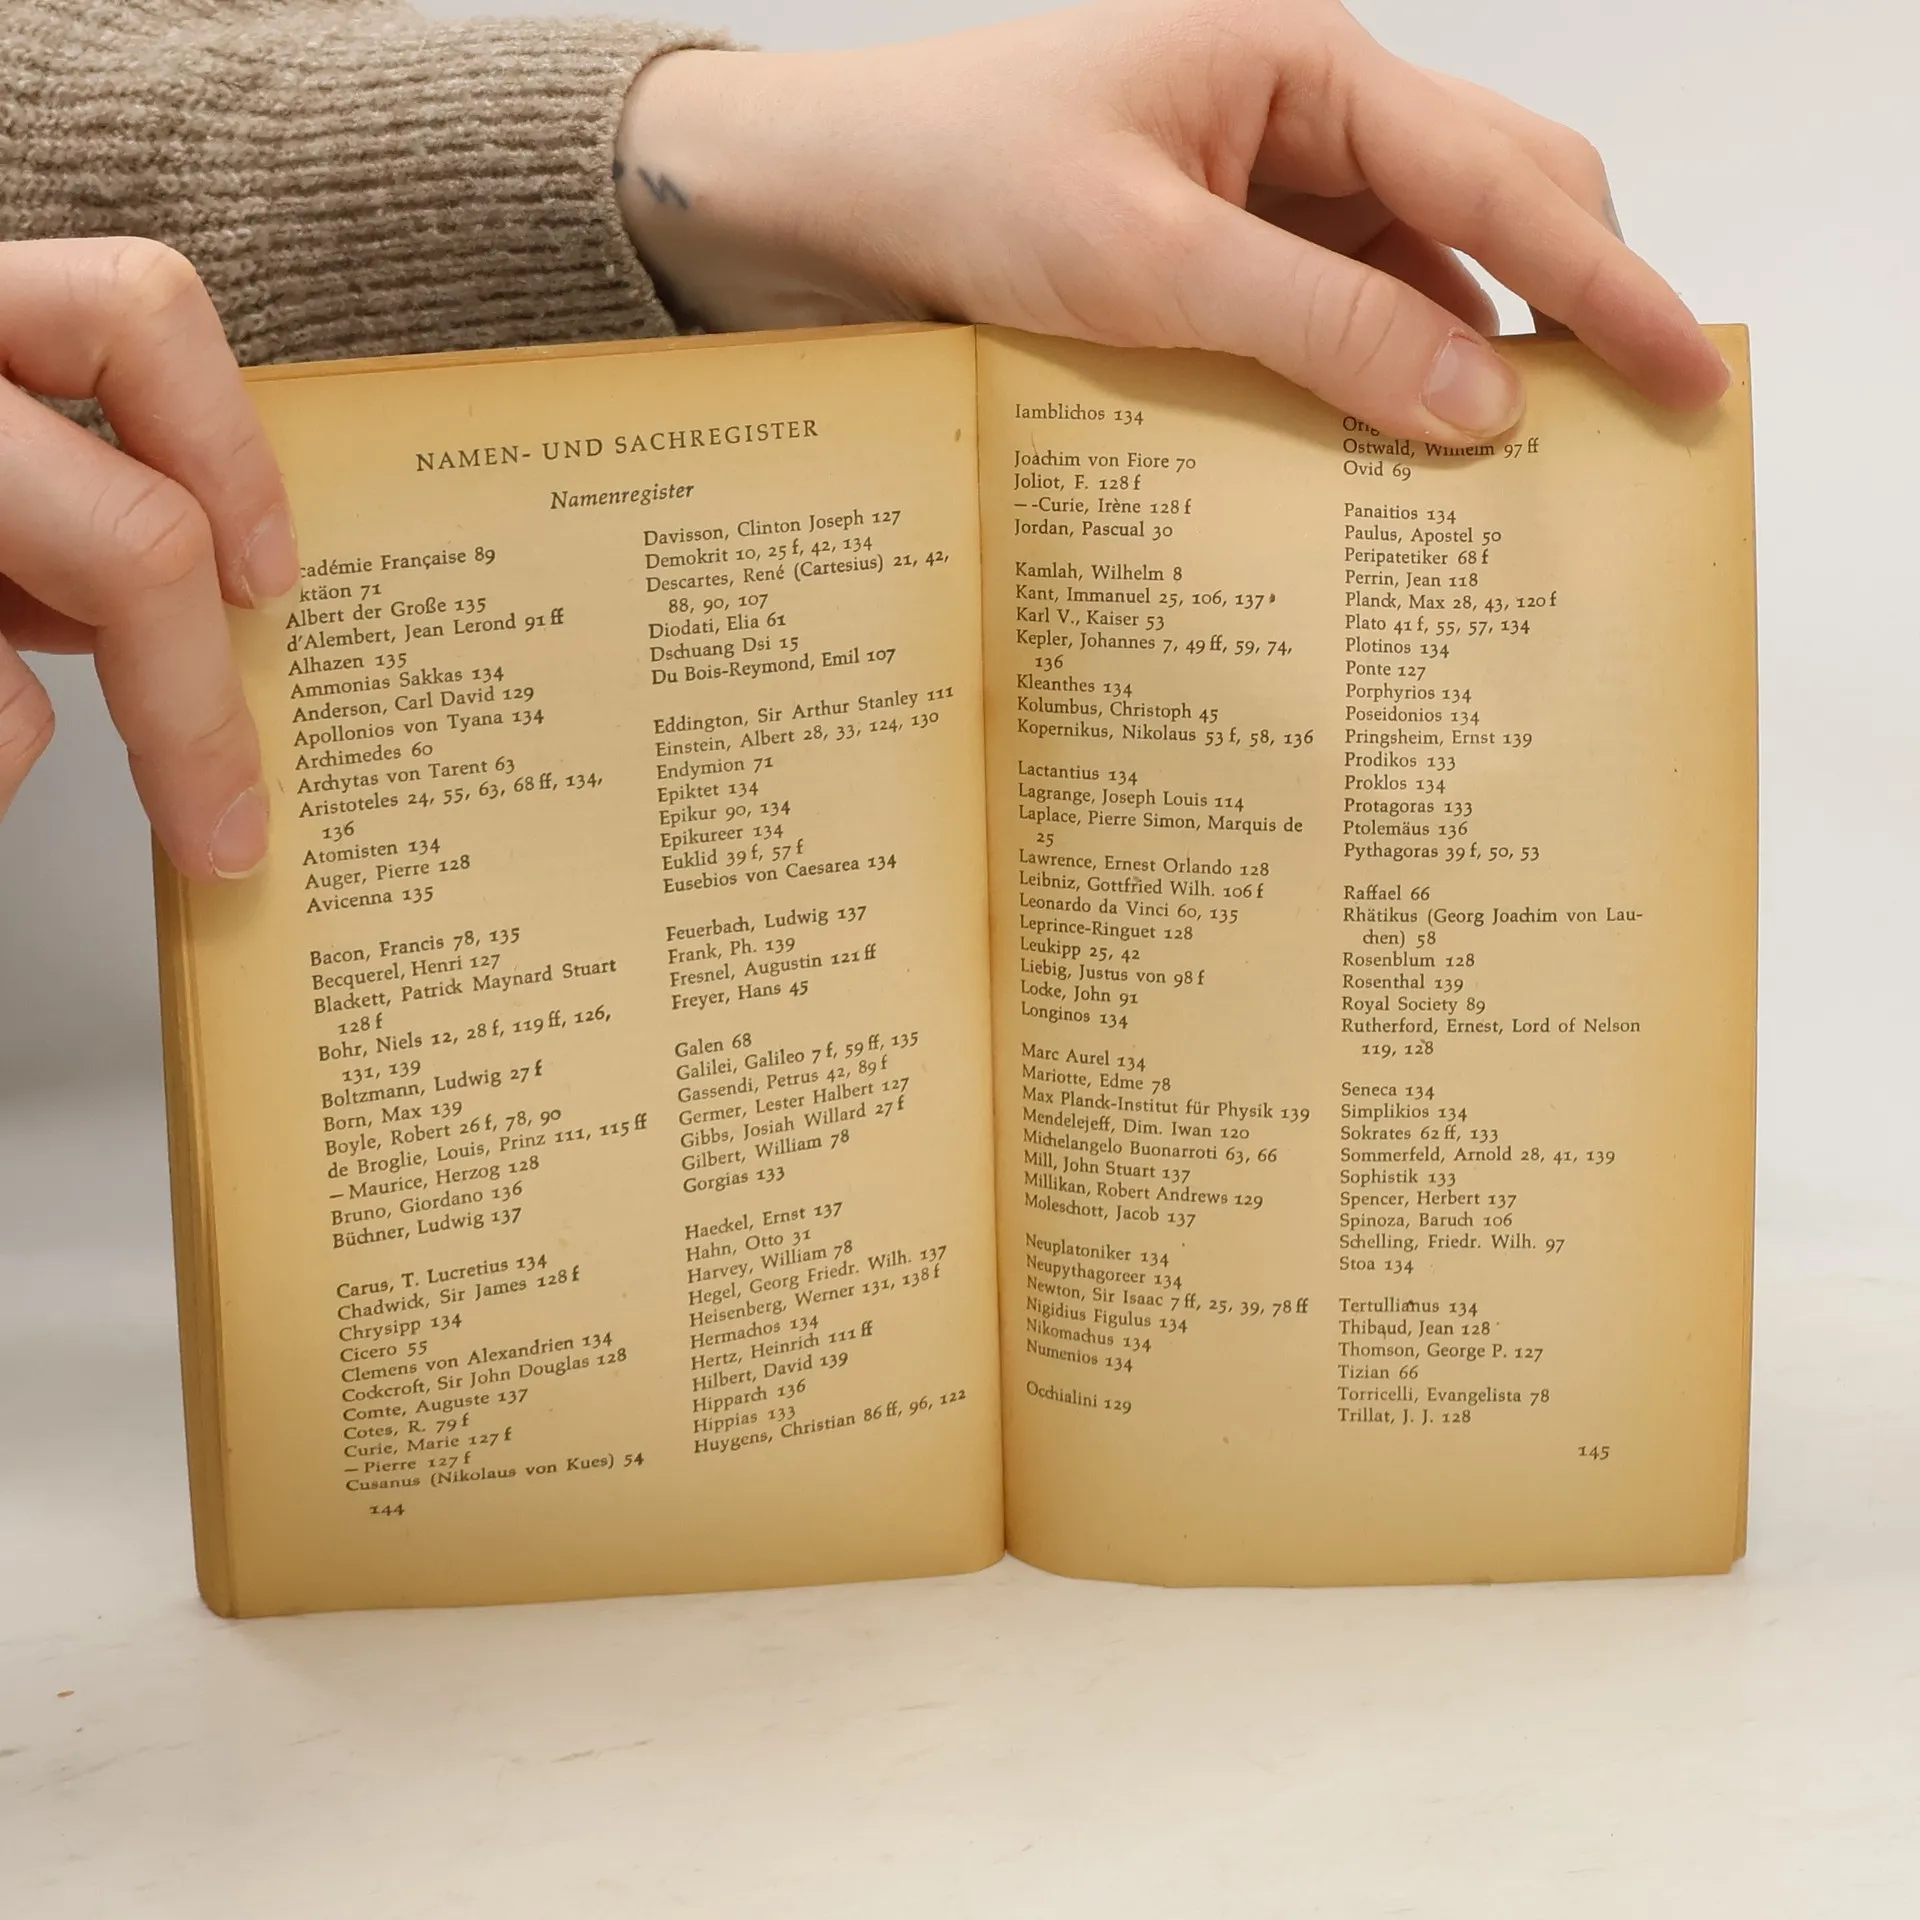 NAMEN- UND SACHREGISTER
Namenregister
cadémie Française 89
ktäon 71
Albert der Große 135
d'Alembert, Jean Lerond 91 ff
Alhazen 135
Ammonias Sakkas 134
Anderson, Carl David 129
Apollonios von Tyana 134
Archimedes 60
Archytas von Tarent 63
Aristoteles 24, 55, 63, 68 ff, 134,
136
Atomisten 134
Auger, Pierre 128
Avicenna 135
Bacon, Francis 78, 135
Becquerel, Henri 127
Blackett, Patrick Maynard Stuart
128 f
Bohr, Niels 12, 28 f, 119 ff, 126,
131, 139
Boltzmann, Ludwig 27 f
Born, Max 139
Boyle, Robert 26 f, 78, 90
de Broglie, Louis, Prinz 111, 115 ff
— Maurice, Herzog 128
Bruno, Giordano 136
Büchner, Ludwig 137
Carus, T. Lucretius 134
Chadwick, Sir James 128 f
Chrysipp 134
Cicero 55
Clemens von Alexandrien 134
Cockcroft, Sir John Douglas 128
Comte, Auguste 137
Cotes, R. 79 f
Curie, Marie 127 f
— Pierre 127 f
Cusanus (Nikolaus von Kues) 54
144
Davisson, Clinton Joseph 127
Demokrit 10, 25 f, 42, 134
Descartes, René (Cartesius) 21, 42,
88, 90, 107
Diodati, Elia 61
Dschuang Dsi 15
Du Bois-Reymond, Emil 107
Eddington, Sir Arthur Stanley 111
Einstein, Albert 28, 33, 124, 130
Endymion 71
Epiktet 134
Epikur 90, 134
Epikureer 134
Euklid 39 f, 57 f
Eusebios von Caesarea 134
Feuerbach, Ludwig 137
Frank, Ph. 139
Fresnel, Augustin 121 ff
Freyer, Hans 45
Galen 68
Galilei, Galileo 7 f, 59 ff, 135
Gassendi, Petrus 42, 89 f
Germer, Lester Halbert 127
Gibbs, Josiah Willard 27 f
Gilbert, William 78
Gorgias 133
Haeckel, Ernst 137
Hahn, Otto 31
Harvey, William 78
Hegel, Georg Friedr. Wilh. 137
Heisenberg, Werner 131, 138 f
Hermachos 134
Hertz, Heinrich 111 ff
Hilbert, David 139
Hipparch 136
Hippias 133
Huygens, Christian 86 ff, 96, 122
Iamblichos 134
Joachim von Fiore 70
Joliot, F. 128 f
— -Curie, Irène 128 f
Jordan, Pascual 30
Kamlah, Wilhelm 8
Kant, Immanuel 25, 106, 137
Karl V., Kaiser 53
Kepler, Johannes 7, 49 ff, 59, 74,
136
Kleanthes 134
Kolumbus, Christoph 45
Kopernikus, Nikolaus 53 f, 58, 136
Lactantius 134
Lagrange, Joseph Louis 114
Laplace, Pierre Simon, Marquis de
25
Lawrence, Ernest Orlando 128
Leibniz, Gottfried Wilh. 106 f
Leonardo da Vinci 60, 135
Leprince-Ringuet 128
Leukipp 25, 42
Liebig, Justus von 98 f
Locke, John 91
Longinos 134
Marc Aurel 134
Mariotte, Edme 78
Max Planck-Institut für Physik 139
Mendelejeff, Dim. Iwan 120
Michelangelo Buonarroti 63, 66
Mill, John Stuart 137
Millikan, Robert Andrews 129
Moleschott, Jacob 137
Neuplatoniker 134
Neupythagoreer 134
Newton, Sir Isaac 7 ff, 25, 39, 78 ff
Nigidius Figulus 134
Nikomachus 134
Numenios 134
Occhialini 129
Orig
Ostwald, Wilhelm 97 ff
Ovid 69
Panaitios 134
Paulus, Apostel 50
Peripatetiker 68 f
Perrin, Jean 118
Planck, Max 28, 43, 120 f
Plato 41 f, 55, 57, 134
Plotinos 134
Ponte 127
Porphyrios 134
Poseidonios 134
Pringsheim, Ernst 139
Prodikos 133
Proklos 134
Protagoras 133
Ptolemäus 136
Pythagoras 39 f, 50, 53
Raffael 66
Rhätikus (Georg Joachim von Lau-
chen) 58
Rosenblum 128
Rosenthal 139
Royal Society 89
Rutherford, Ernest, Lord of Nelson
119, 128
Seneca 134
Simplikios 134
Sokrates 62 ff, 133
Sommerfeld, Arnold 28, 41, 139
Sophistik 133
Spencer, Herbert 137
Spinoza, Baruch 106
Schelling, Friedr. Wilh. 97
Stoa 134
Tertullianus 134
Thibaud, Jean 128
Thomson, George P. 127
Tizian 66
Torricelli, Evangelista 78
Trillat, J. J. 128
145